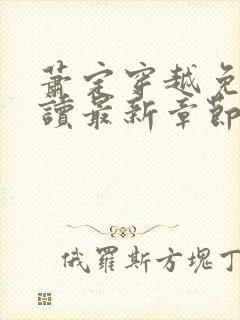 蕭定穿越免
讀最新章節
俄羅斯方塊丁